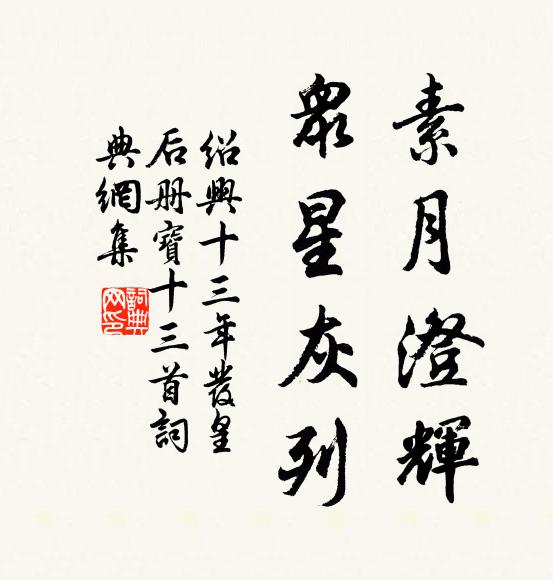 素月澄輝
眾星灰列
紹興十三年發皇
后册寶十三首詞
典網集
詞典
网印